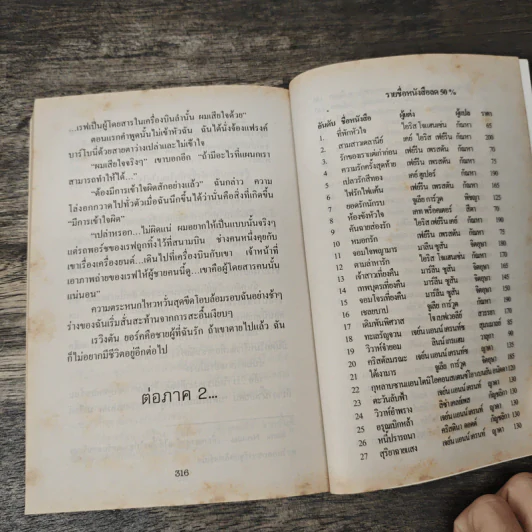 ...เรฟเป็นผู้โดยสารในเครื่องบินลำนั้น ผมเสียใจด้วย"
ตอนแรกคำพูดนั้นไม่เข้าหัวฉัน ฉันได้นั่งจ้องแฟรงค์
บาร์โบนี้ด้วยสายตาว่างเปล่าและไม่เข้าใจ
"ผมเสียใจจริงๆ" เขาบอกอีก "ถ้ามีอะไรที่แผนกเรา
สามารถทำให้ได้..."
"ต้องมีการเข้าใจผิดสักอย่างแล้ว" ฉันกล่าว ความ
โล่งอกกวาดไปทั่วตัวเมื่อฉันนึกขึ้นได้ว่านั่นคือสิ่งที่เกิดขึ้น
"มีการเข้าใจผิด"
"เปล่าหรอก...ไม่ผิดแน่ ผมอยากให้เป็นแบบนั้นจริงๆ
แต่รถพอร์ชของเรฟถูกทิ้งไว้ที่สนามบิน ช่างคนหนึ่งคุยกับ
เขาเรื่องเครื่องยนต์...เดินไปที่เครื่องบินกับเขา เจ้าหน้าที่
เอาภาพถ่ายของเรฟให้ผู้ชายคนนี้ดู...เขาคือผู้โดยสารคนนั้น
แน่นอน"
ความตระหนกไหวหวั่นสุดขีดโอบล้อมรอบฉันอย่างช้าๆ
ร่างของฉันเริ่มสั่นสะท้านจากการสะอื้นเงียบๆ
เรวิงตัน ยอร์คคือชายผู้ที่ฉันรัก ถ้าเขาตายไปแล้ว ฉัน
ก็ไม่อยากมีชีวิตอยู่อีกต่อไป
ต่อภาค 2...
316
รายชื่อหนังสือลด 50 %
อันดับ ชื่อหนังสือ ผู้แต่ง ผู้แปล ราคา
1. ที่พักหัวใจ ไอริส โจแฮนเซ่น กัณหา 65
2. สามสาวเดลานีย์ เคย์ ไอริส เฟย์รีน กัณหา 200
3. รักของเราแต่เก่าก่อน เฟย์รีน เพรสตัน กัณหา 70
4. ความรักครั้งสุดท้าย ไอริส เฟย์รีน กัณหา
5. เปลวรักสีทอง เคย์ ฮูเปอร์ กัณหา
6. ไฟรักไฟแค้น เฟย์รีน เพรสตัน กัณหา
7. ยอดรักนักรบ จูเลีย การ์วูด พิชญา 125
8. ห้องขังหัวใจ
9. คันฉายส่องรัก เฟย์รีน เพรสตัน กัณหา
10 หมอกรัก
11 จอมใจพญามาร มาลีน ซูสัน จิตอุษา
12 ตามล่าหารัก ไอริส โจแฮนเซ่น กัณหา
13 เจ้าสาวเที่ยงคืน มารีลีน ซูสัน จิตอุษา
14 เทพบุตรเที่ยงคืน มารีลีน ซูสัน จิตอุษา
15 จอมโจรเที่ยงคืน มารีลีน ซูสัน จิตอุษา
16 เชลยบาป จูเลีย การ์วูด กัณหา
17 เดิมพันพิศวาส
18 ทะเลรัญจวน เจย์น แอนน์ เครนท์ซ
19 วิวาห์จำยอม ลินน์ เกรแฮม
20 คริสตัลมรณะ เจย์น แอนน์ เครนท์ซ ญาดา
21 ใต้เงามาร จูเลีย การ์วูด จิตอุษา 160
22
23 ตะวันลับฟ้า เจย์น แอนน์ เครนท์ซ ญาดา
24 วิวาห์อำพราง ลิซ่า เคลย์แพส กัญชลิกา
25 อรุณเบิกหล้า เจย์น แอนน์ เครนท์ซ ญาดา
26 หนี้ปรารถนา คริสตินา ดอดด์ กัญชลิกา 130
27 สุริยาฉายแสง เจย์น แอนน์ เครนท์ ญาดา 130